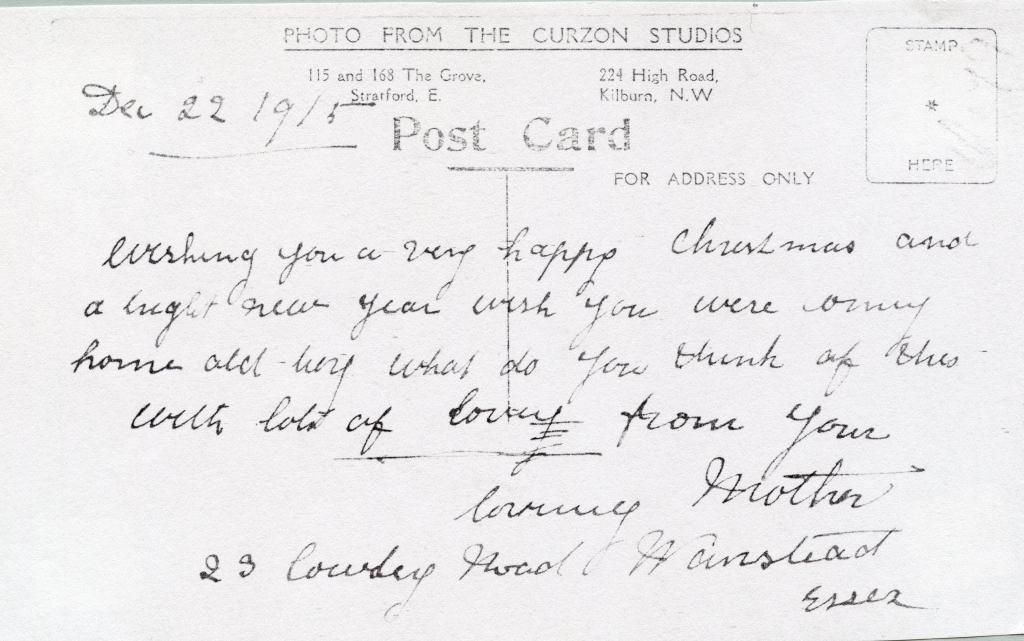 PHOTO FROM THE CURZON STUDIOS
115 and 168 The Grove, 224 High Road,
Stratford, E. Kilburn, N.W
Dec 22 1915
Post Card
STAMP
HERE
FOR ADDRESS ONLY
Wishing you a very happy Christmas and
a bright new year wish you were coming
home old boy what do you think of this
with lots of from your
loving Mother
23 Road Wanstead
Essex